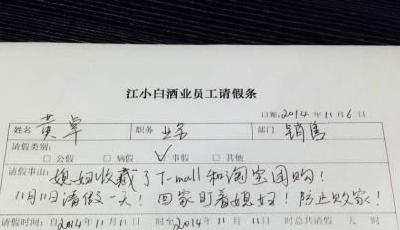 江小白酒业员工请假条
日期：2014年11月6日
姓名 黄卓 职务 业务 部门 销售
请假类别：
□公假 □病假 ✓事假 □其他
请假事由：媳妇收藏了T-mall和淘宝团购！
11月11日请假一天！回家盯着媳妇！防止败家！
请假时间：自2014年11月11日 时至2014年11月11日 时总共请假 天